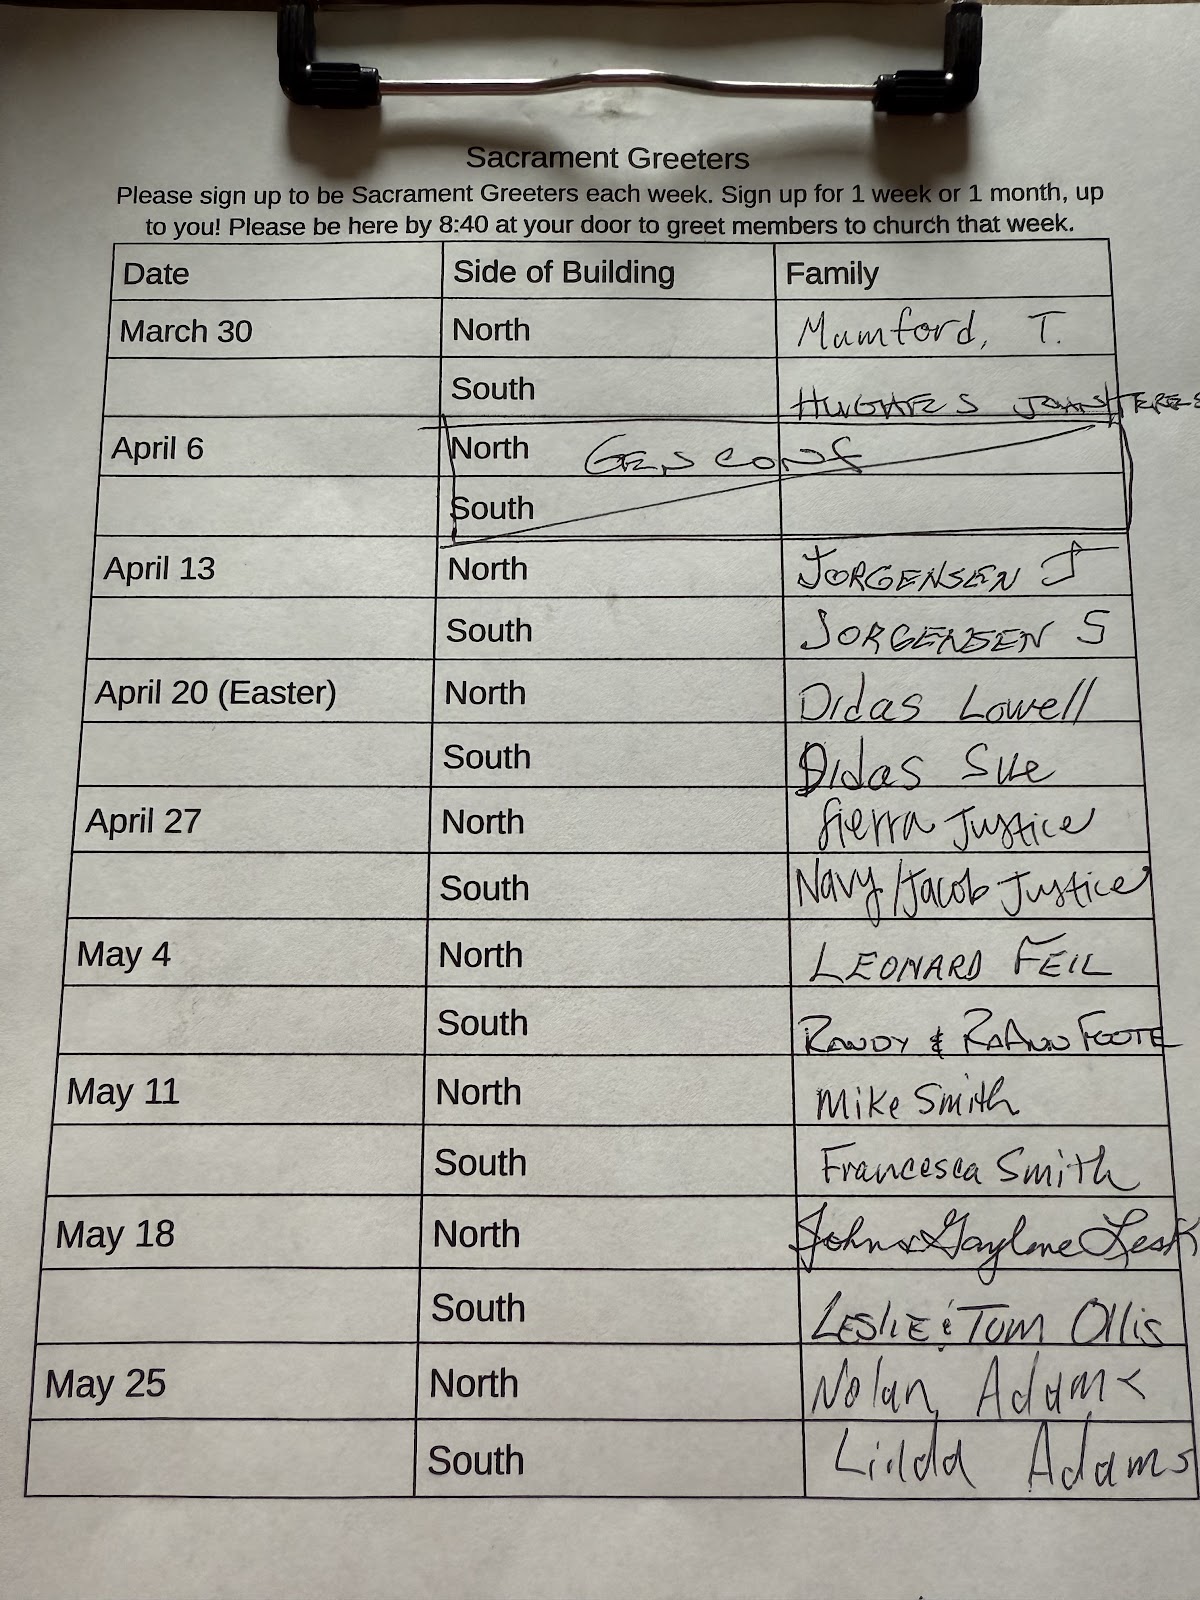 Sacrament Greeters
Please sign up to be Sacrament Greeters each week. Sign up for 1 week or 1 month, up
to you! Please be here by 8:40 at your door to greet members to church that week.
Date Side of Building Family
March 30 North Mumford, T.
South HUGHES JOHN/
April 6 North GEN CONF
South
April 13 North JORGENSEN J
South JORGENSEN S
April 20 (Easter) North Didas Lowell
South Didas Sue
April 27 North Sierra Justice
South Navy/Jacob Justice
May 4 North LEONARD FEIL
South RANDY & RAANN FOOTE
May 11 North Mike Smith
South Francesca Smith
May 18 North John & Gaylene Lesk
South LESLIE & TOM Ollis
May 25 North Nolan Adams
South Linda Adams